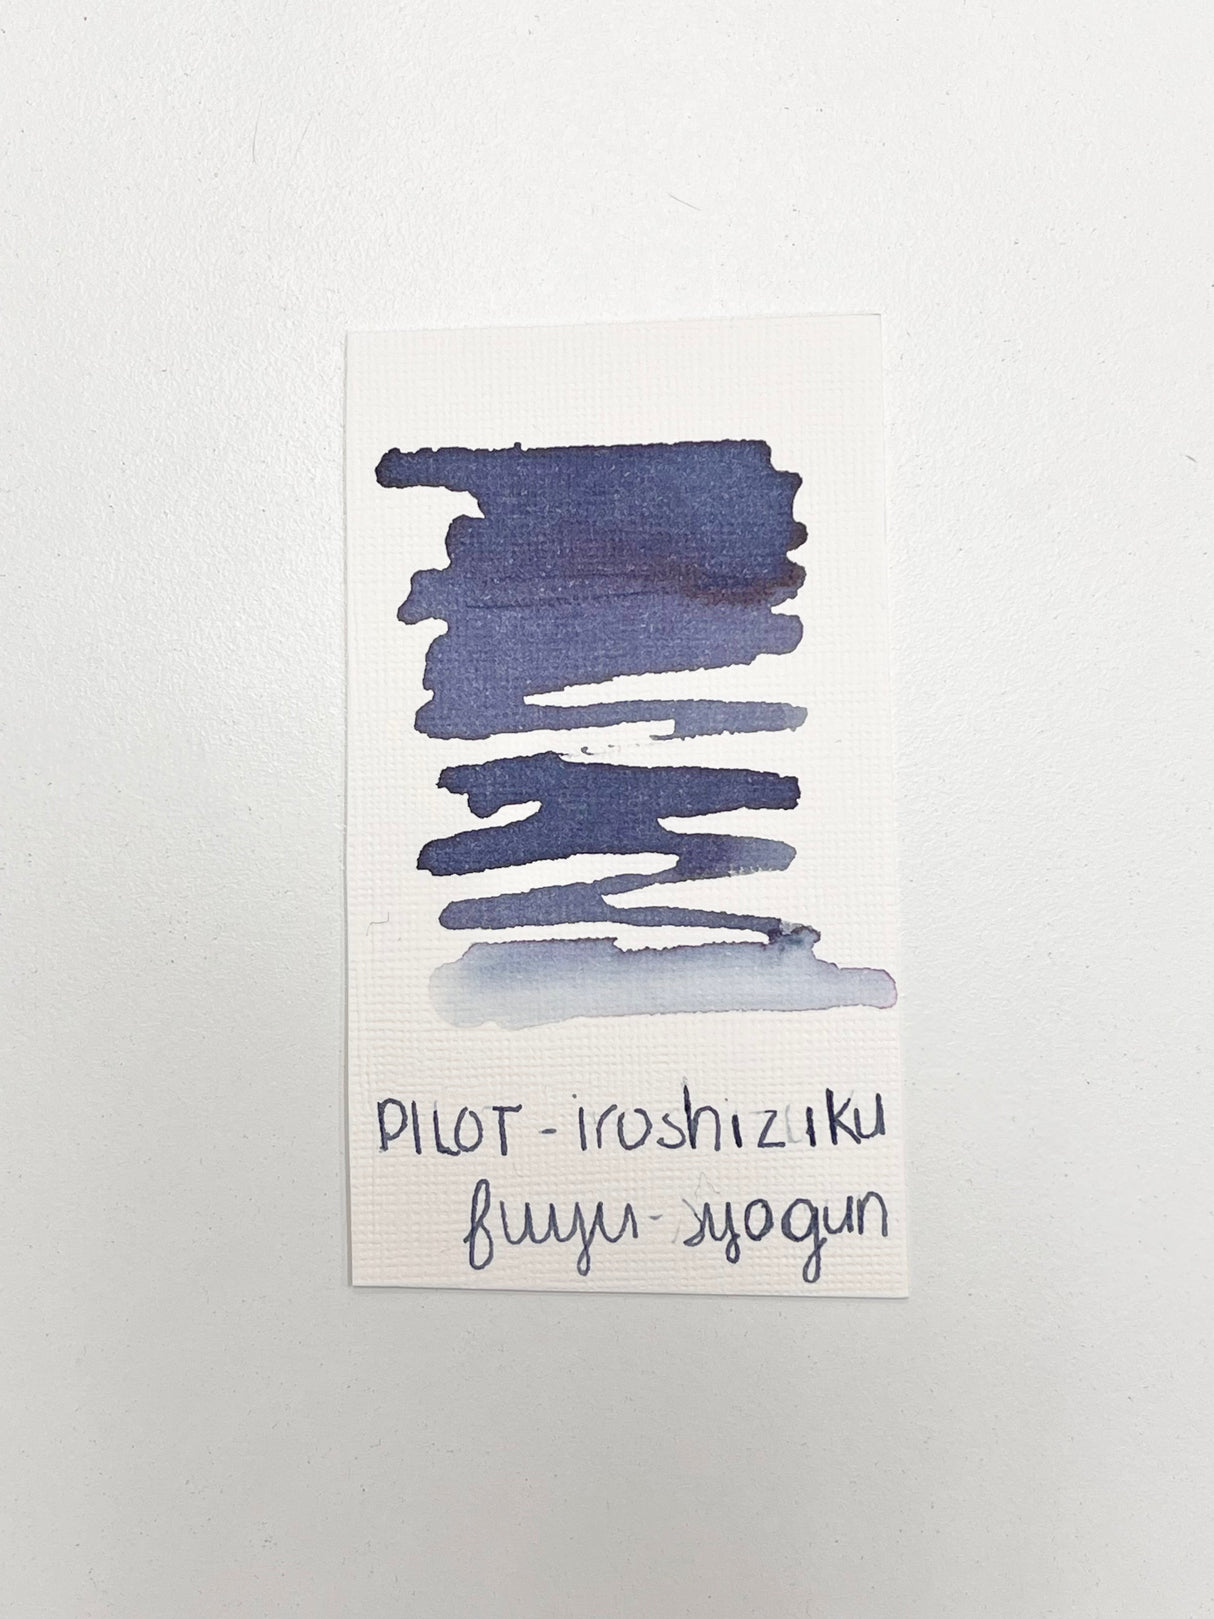 PILOT - iroshiziku
fuyu-syogun